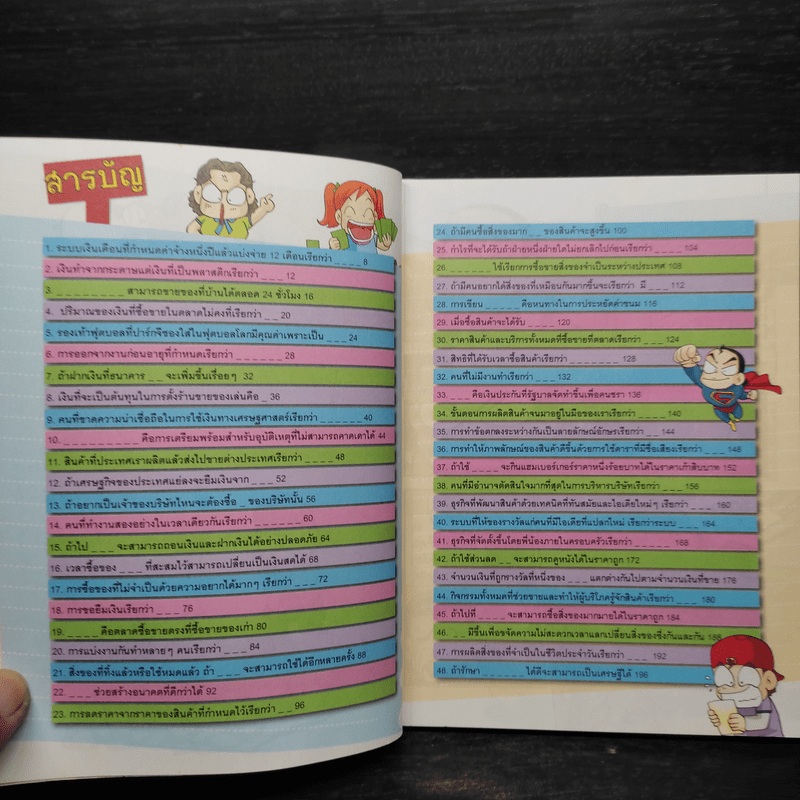 สารบัญ
1. ระบบเงินเดือนที่กำหนดค่าจ้างหนึ่งปีแล้วแบ่งจ่าย 12 เดือนเรียกว่า _ _ _ _ 8
2. เงินทำจากกระดาษแต่เงินที่เป็นพลาสติกเรียกว่า _ _ _ _ 12
3. _ _ _ _ _ _ _ _ สามารถขายของที่บ้านได้ตลอด 24 ชั่วโมง 16
4. ปริมาณของเงินที่ซื้อขายในตลาดไม่คงที่เรียกว่า _ _ 20
5. รองเท้าฟุตบอลที่ปาร์กจีซองใส่ในฟุตบอลโลกมีคุณค่าเพราะเป็น _ _ _ 24
6. การออกจากงานก่อนอายุที่กำหนดเรียกว่า _ _ _ _ _ _ 28
7. ถ้าฝากเงินที่ธนาคาร _ _ จะเพิ่มขึ้นเรื่อยๆ 32
8. เงินที่จะเป็นต้นทุนในการตั้งร้านขายของเล่นคือ _ 36
9. คนที่ขาดความน่าเชื่อถือในการใช้เงินทางเศรษฐศาสตร์เรียกว่า _ _ _ _ _ 40
10. _ _ _ _ _ _ _ _ คือการเตรียมพร้อมสำหรับอุบัติเหตุที่ไม่สามารถคาดเดาได้ 44
11. สินค้าที่ประเทศเราผลิตแล้วส่งไปขายต่างประเทศเรียกว่า _ _ _ _ 48
12. ถ้าเศรษฐกิจของประเทศแย่ลงจะยืมเงินจาก _ _ _ 52
13. ถ้าอยากเป็นเจ้าของบริษัทไหนจะต้องซื้อ _ ของบริษัทนั้น 56
14. คนที่ทำงานสองอย่างในเวลาเดียวกันเรียกว่า _ _ _ _ _ _ 60
15. ถ้าไป _ _ _ จะสามารถถอนเงินและฝากเงินได้อย่างปลอดภัย 64
16. เวลาซื้อของ _ _ _ ที่สะสมไว้สามารถเปลี่ยนเป็นเงินสดได้ 68
17. การซื้อของที่ไม่จำเป็นด้วยความอยากได้มากๆ เรียกว่า _ _ _ 72
18. การขอยืมเงินเรียกว่า _ _ _ 76
19. _ _ _ _ คือตลาดซื้อขายตรงที่ซื้อขายของเก่า 80
20. การแบ่งงานกันทำหลายๆ คนเรียกว่า _ _ _ 84
21. สิ่งของที่ทิ้งแล้วหรือใช้หมดแล้ว ถ้า _ _ _ จะสามารถใช้ได้อีกหลายครั้ง 88
22. _ _ _ ช่วยสร้างอนาคตที่ดีกว่าได้ 92
23. การลดราคาจากราคาของสินค้าที่กำหนดไว้เรียกว่า _ _ 96
24. ถ้ามีคนซื้อสิ่งของมาก _ _ ของสินค้าจะสูงขึ้น 100
25. กำไรที่จะได้รับถ้าฝ่ายหนึ่งฝ่ายใดไม่ยกเลิกไปก่อนเรียกว่า _ _ _ _ 104
26. _ _ _ _ _ _ ใช้เรียกการซื้อขายสิ่งของจำเป็นระหว่างประเทศ 108
27. ถ้ามีคนอยากได้สิ่งของที่เหมือนกันมากขึ้นจะเรียกว่า มี _ _ _ 112
28. การเขียน _ _ _ _ _ คือหนทางในการประหยัดค่าขนม 116
29. เมื่อซื้อสินค้าจะได้รับ _ _ _ _ 120
30. ราคาสินค้าและบริการทั้งหมดที่ซื้อขายที่ตลาดเรียกว่า _ _ _ _ 124
31. สิทธิที่ได้รับเวลาซื้อสินค้าเรียกว่า _ _ _ _ _ _ _ 128
32. คนที่ไม่มีงานทำเรียกว่า _ _ 132
33. _ _ _ คือเงินประกันที่รัฐบาลจัดทำขึ้นเพื่อคนชรา 136
34. ขั้นตอนการผลิตสินค้าจนมาอยู่ในมือของเราเรียกว่า _ _ _ _ _ 140
35. การทำข้อตกลงระหว่างกันเป็นลายลักษณ์อักษรเรียกว่า _ _ 144
36. การทำให้ภาพลักษณ์ของสินค้าดีขึ้นด้วยการใช้ดาราที่มีชื่อเสียงเรียกว่า _ _ _ 148
37. ถ้าใช้ _ _ _ _ จะกินแฮมเบอร์เกอร์ราคาหนึ่งร้อยบาทได้ในราคาเก้าสิบบาท 152
38. คนที่มีอำนาจตัดสินใจมากที่สุดในการบริหารบริษัทเรียกว่า _ _ _ 156
39. ธุรกิจที่พัฒนาสินค้าด้วยเทคนิคที่ทันสมัยและไอเดียใหม่ๆ เรียกว่า _ _ _ _ 160
40. ระบบที่ให้ของรางวัลแก่คนที่มีไอเดียที่แปลกใหม่ เรียกว่าระบบ _ _ _ 164
41. ธุรกิจที่จัดตั้งขึ้นโดยพี่น้องภายในครอบครัวเรียกว่า _ _ _ _ _ 168
42. ถ้าใช้ส่วนลด _ _ จะสามารถดูหนังได้ในราคาถูก 172
43. จำนวนเงินที่ถูกรางวัลที่หนึ่งของ _ _ _ แตกต่างกันไปตามจำนวนเงินที่ขาย 176
44. กิจกรรมทั้งหมดที่ช่วยขายและทำให้ผู้บริโภครู้จักสินค้าเรียกว่า _ _ _ 180
45. ถ้าไปที่ _ _ _ _ จะสามารถซื้อสิ่งของมากมายได้ในราคาถูก 184
46. _ _ มีขึ้นเพื่อขจัดความไม่สะดวกเวลาแลกเปลี่ยนสิ่งของซึ่งกันและกัน 188
47. การผลิตสิ่งของที่จำเป็นในชีวิตประจำวันเรียกว่า _ _ _ 192
48. ถ้ารักษา _ _ _ _ _ ได้ดีจะสามารถเป็นเศรษฐีได้ 196